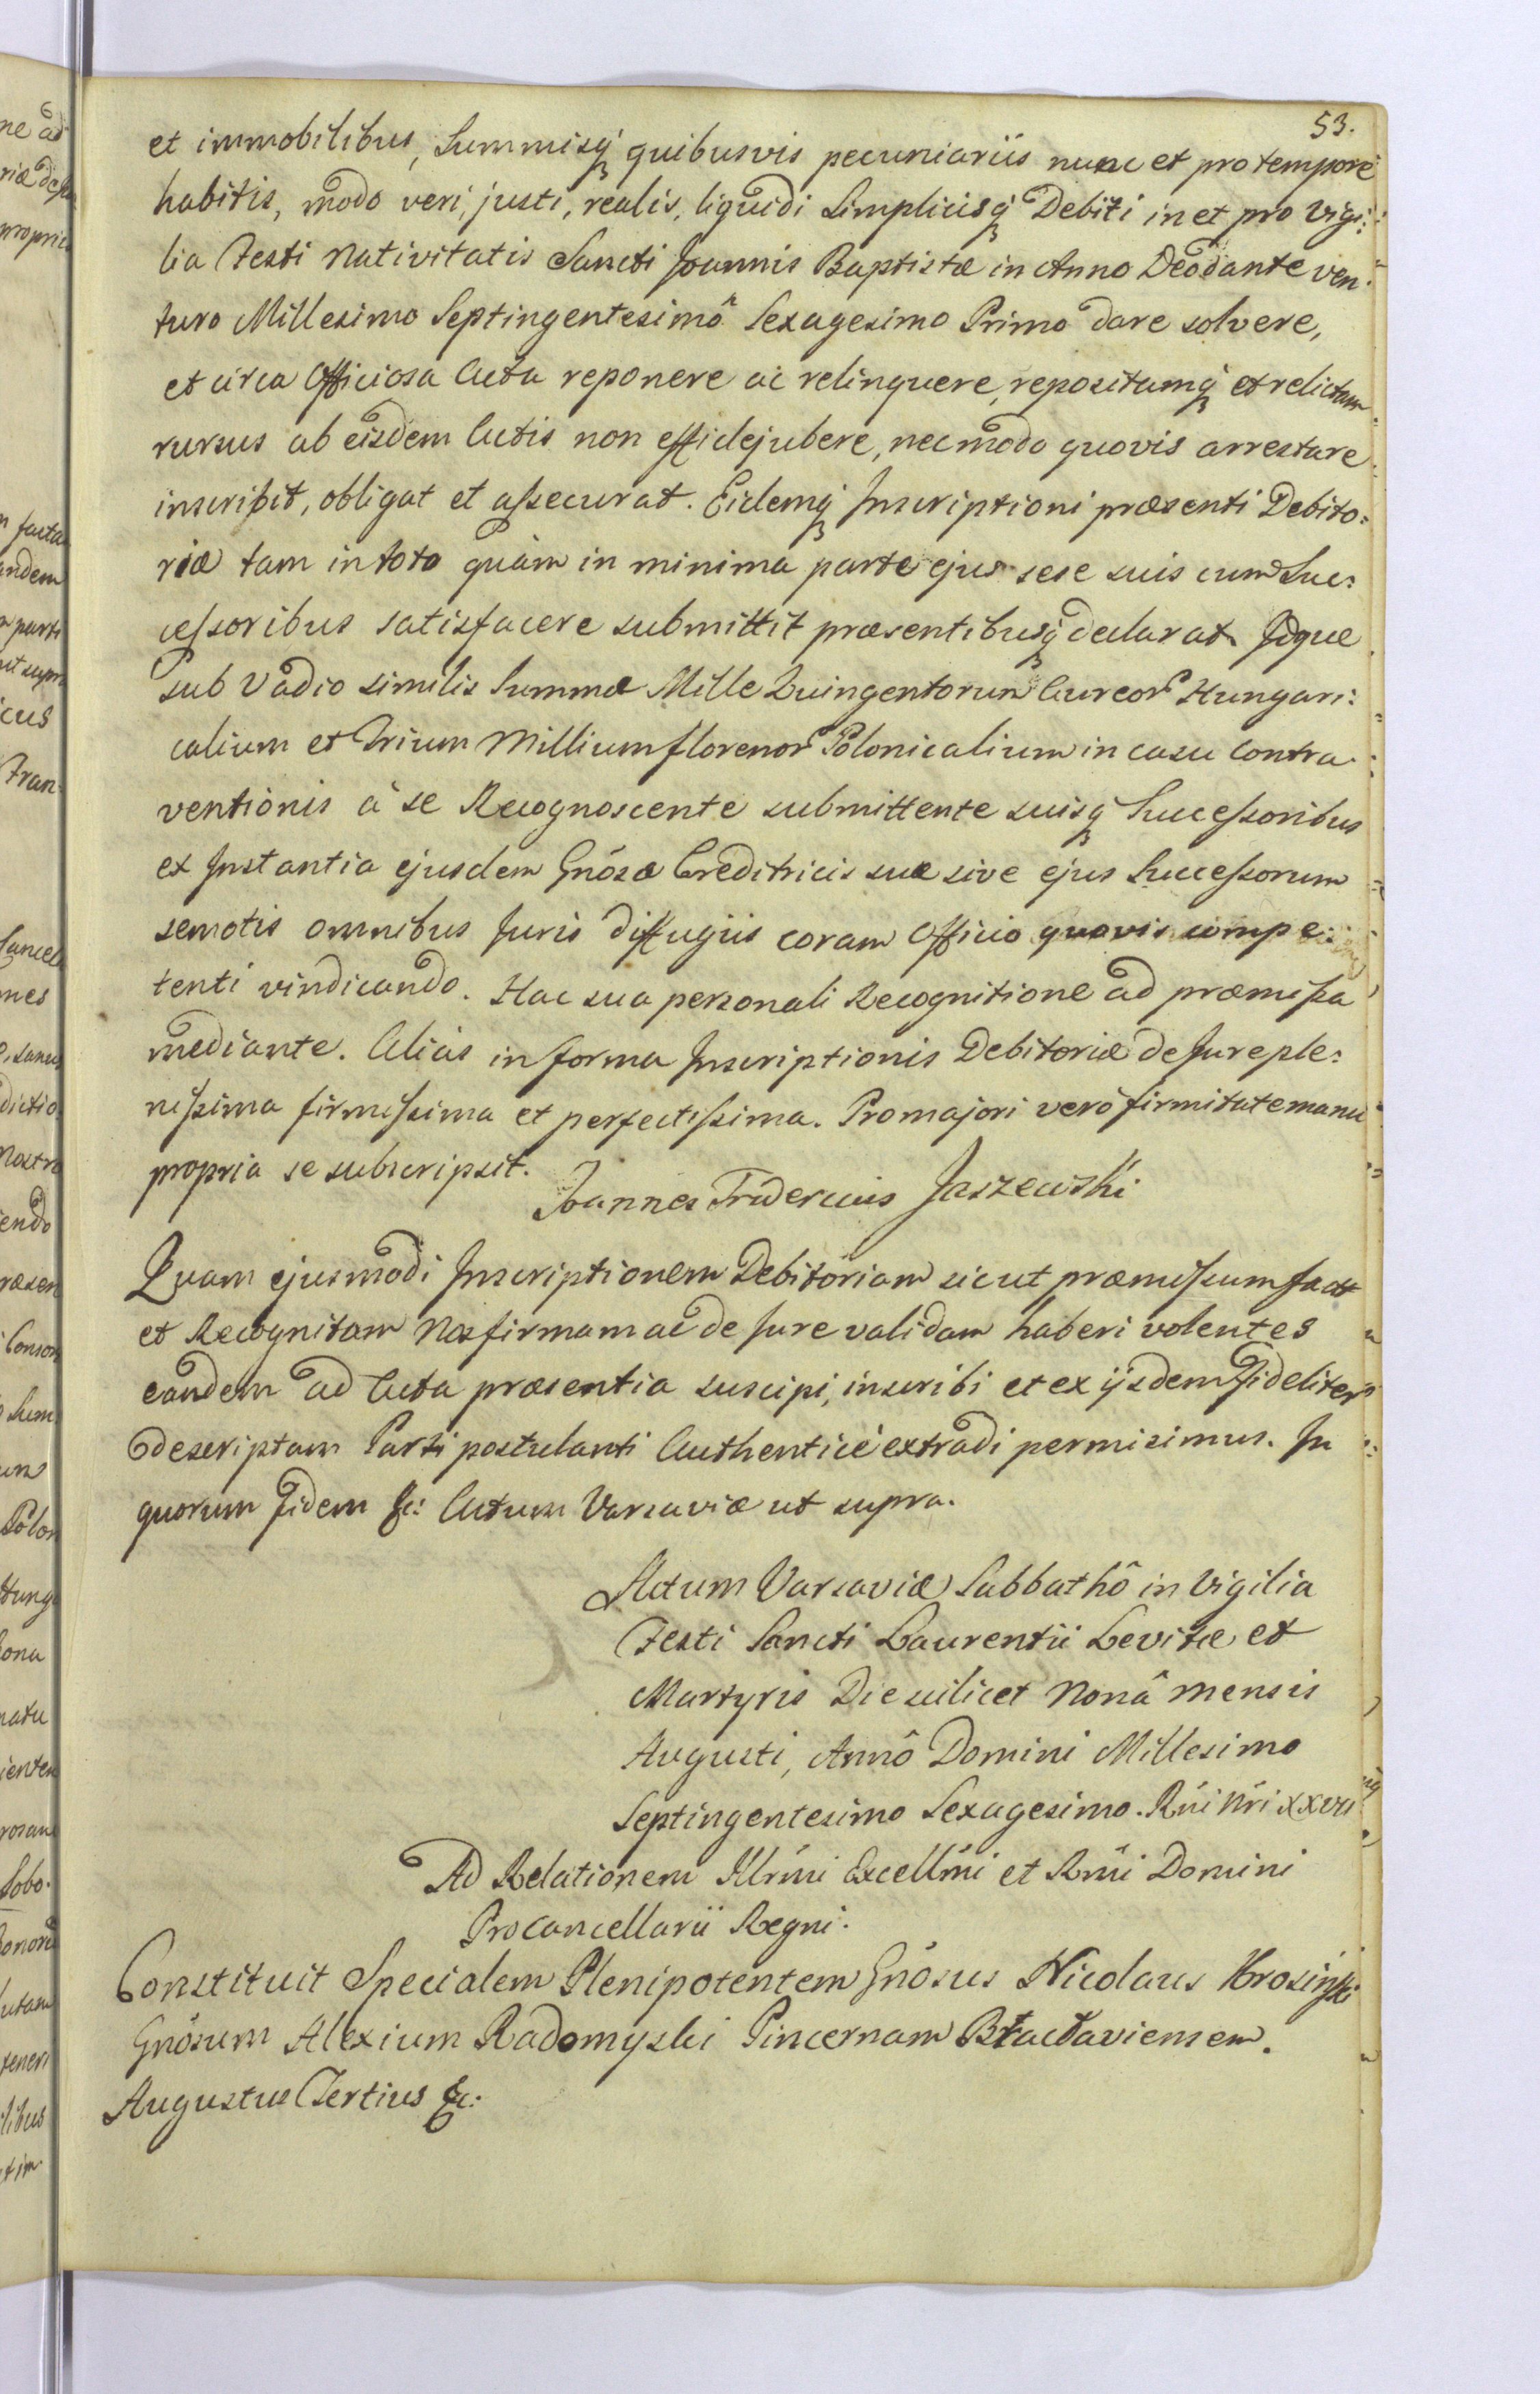 53.
et immobilibus, Summisq quibusvis pecuniariis nunc et pro tempore
habitis, modo veri, justi, realis, liquidi Simplicisq Debiti in et pro Vigi:
lia Festi Nativitatis Sancti Joannis Baptistæ in Anno Deo dante ven:
turo Millesimo Septingentesimô Sexagesimo Primo dare solvere,
et circa Officiosa Acta reponere ac relinquere, repositamq et relictam
rursus ab eisdem Actis non effidejubere, nec modo quovis arrestare
inscribit, obligat et assecurat. Eidemq Inscriptioni præsenti Debito:
riæ tam in toto quàm in minima parte ejus sese suis cum Suc:
cessoribus satisfacere submittit præsentibusq declarat. Idque
sub Vadio similis Summæ Mille Quingentorum Aureor Hungari:
calium et Trium Millium florenor Polonicalium in casu Contra:
ventionis à se Recognoscente submittente suisq Successoribus
ex Instantia ejusdem Gnósæ Creditricis suæ sive ejus Successorum
semotis omnibus Juris diffugiis coram Officio quovis compe:
tenti vindicando. Hac sua personali Recognitione ad præmissa
mediante. Aliàs in forma Inscriptionis Debitoriæ de Jure ple:
nissima firmissima et perfectissima. Pro majori verò firmitate manu
propria se subscripsit.
Joannes Fridericus Jaszewski
Quam ejusmodi Inscriptionem Debitoriam sicut præmissum fact
et Recognitam Nos firmam ac de Jure validam haberi volentes
eandem ad Acta præsentia suscipi, inscribi et ex ijsdem Fideliter
descriptam Parti postulanti Authenticè extradi permisimus. In
quorum Fidem &c: Actum Varsaviæ ut supra.
Actum Varsaviæ Sabbathô in Vigilia
Festi Sancti Laurentii Levitæ et
Martyris Die scilicet Nonâ mensis
Augusti, Annô Domini Millesimo
Septingentesimo Sexagesimo. Rńi Nŕi XXVII
Ad Relationem Illrmi Excellmi et Rmi Domini
Procancellarii Regni.
Constituit Specialem Plenipotentem Gnósus Nicolaus
Gnósum Alexium Radomyski Pincernam Bractaviensem.
Augustus Tertius &c: